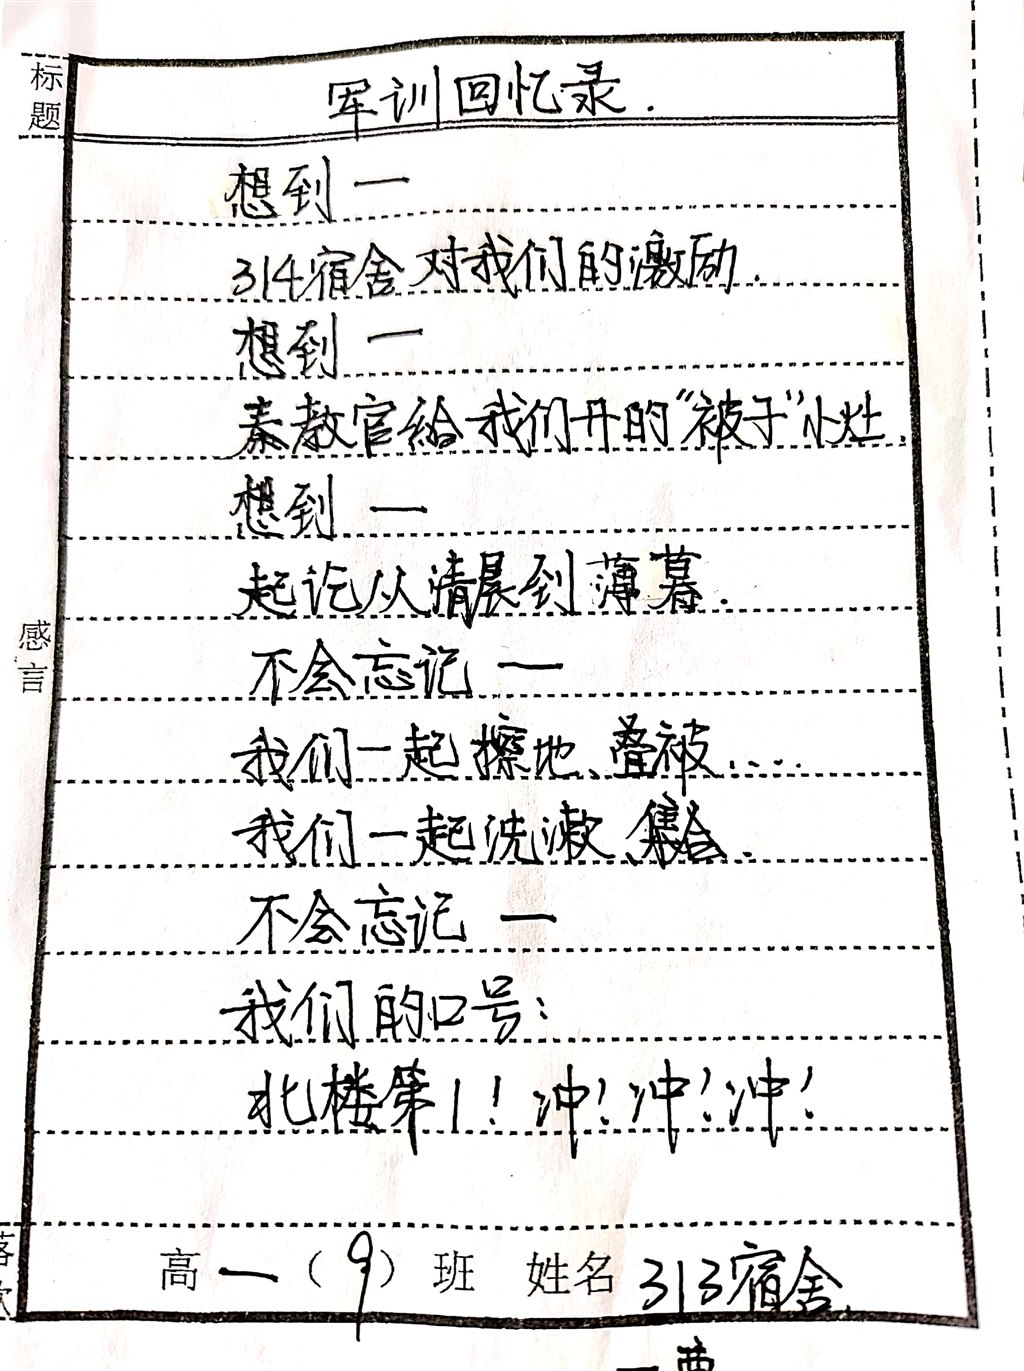 标题
军训回忆录.
想到一
314宿舍对我们的激励.
想到一
秦教官给我们开的“被子”小灶.
想到一
起讫从清晨到薄暮.
感言
不会忘记一
我们一起擦地、叠被....
我们一起洗漱、集合.
不会忘记一
我们的口号：
北楼第1！冲！冲！冲！
落款
高一（9）班 姓名 313宿舍.